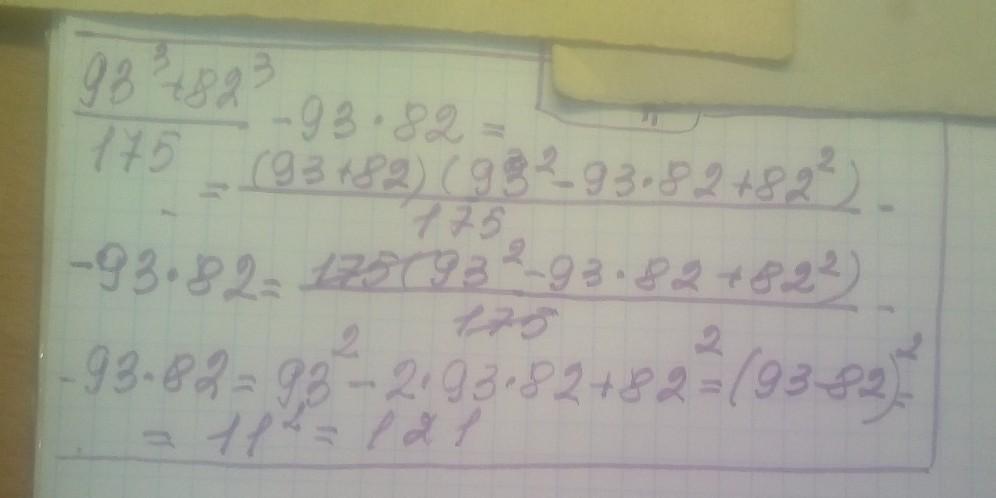 93³+82³
/175 -93·82=
= (93+82)(93²-93·82+82²)/175 -
-93·82= 175(93²-93·82+82²)/175 -
-93·82=93²-2·93·82+82²=(93-82)²=
=11²=121